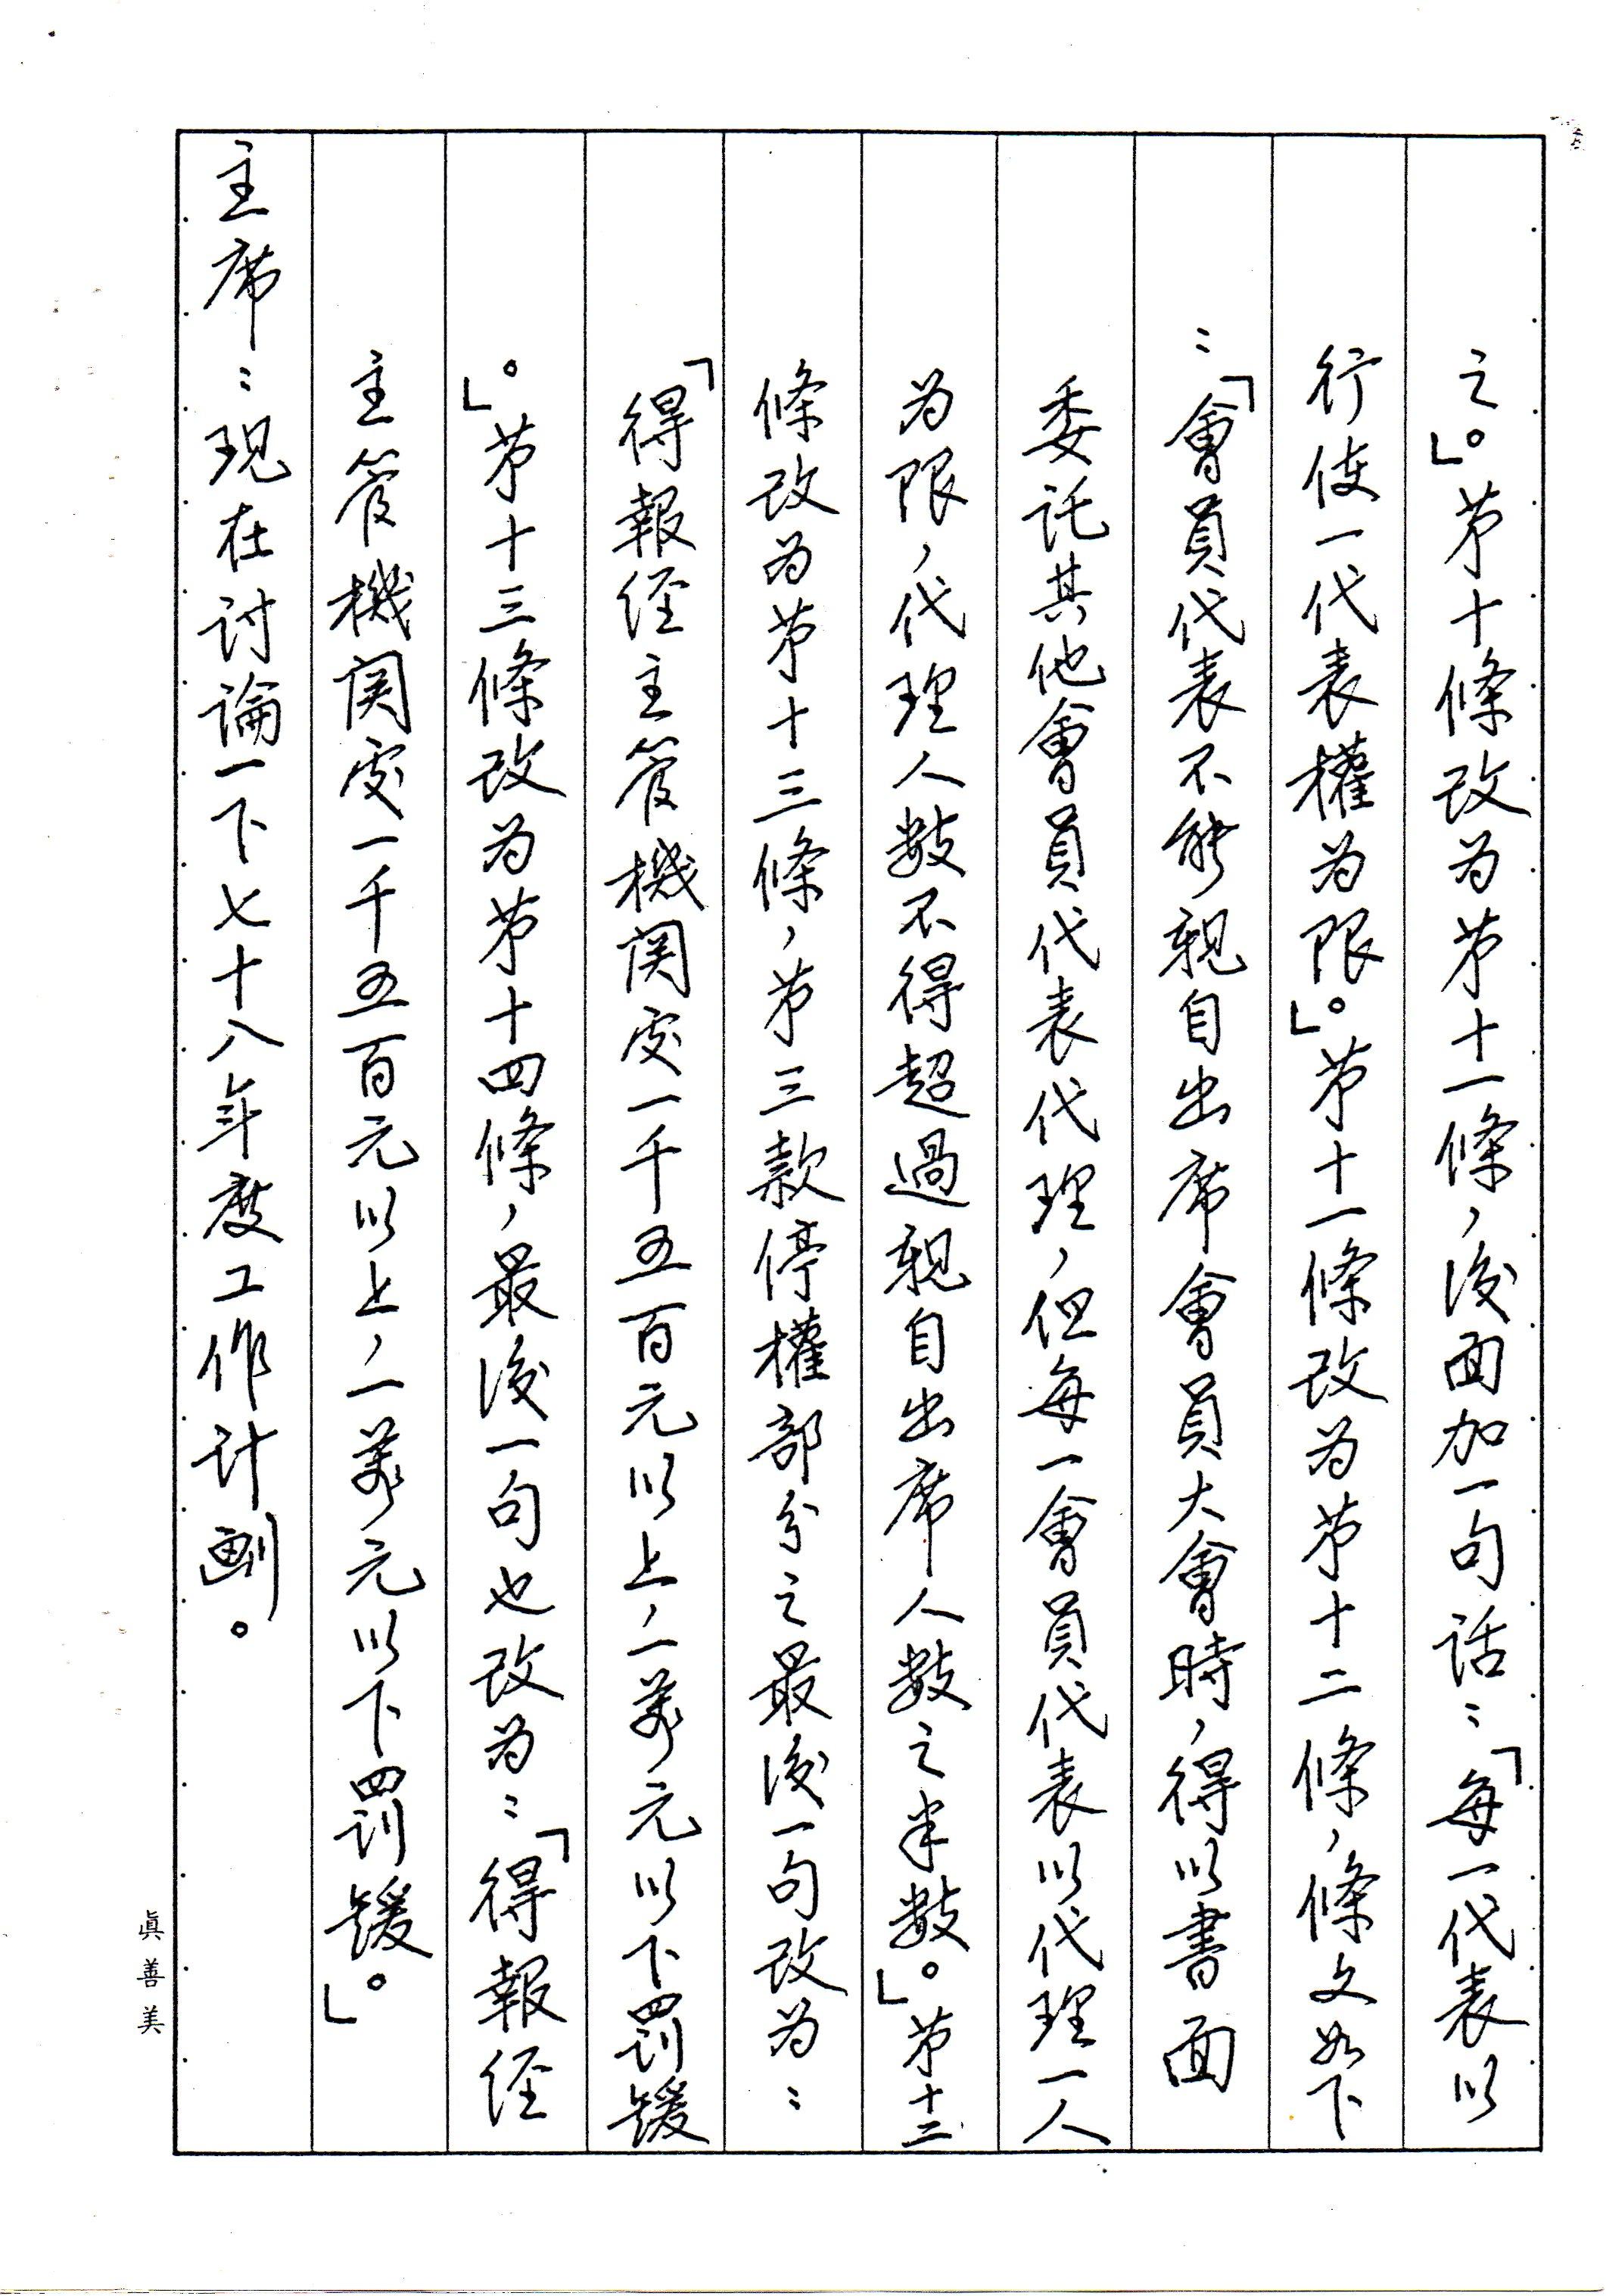 之。」第十條改为第十一條，後面加一句話：「每一代表以
行使一代表權为限。」第十一條改为第十二條，條文如下
：「會員代表不能親自出席會員大會時，得以書面
委託其他會員代表代理，但每一會員代表以代理一人
为限，代理人数不得超過親自出席人数之半数。」第十二
條改为第十三條，第三款停權部分之最後一句改为：
「得報经主管機関處一千五百元以上，一萬元以下罰鍰
。」第十三條改为第十四條，最後一句也改为：「得報经
主管機関處一千五百元以上，一萬元以下罰鍰。」
主席：現在討論一下七十八年度工作計劃。
眞善美